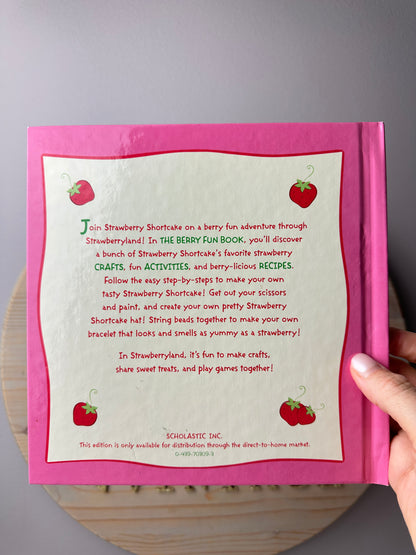 Join Strawberry Shortcake on a berry fun adventure through
Strawberryland! In THE BERRY FUN BOOK, you'll discover
a bunch of Strawberry Shortcake's favorite strawberry
CRAFTS, fun ACTIVITIES, and berry-licious RECIPES.
Follow the easy step-by-steps to make your own
tasty Strawberry Shortcake! Get out your scissors
and paint, and create your own pretty Strawberry
Shortcake hat! String beads together to make your own
bracelet that looks and smells as yummy as a strawberry!
In Strawberryland, it's fun to make crafts,
share sweet treats, and play games together!
SCHOLASTIC INC.
This edition is only available for distribution through the direct-to-home market.